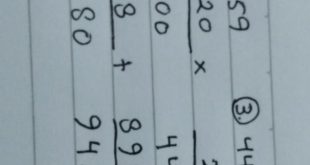 59 ③ 44
20 ×
00 44
8 + 89
80 94